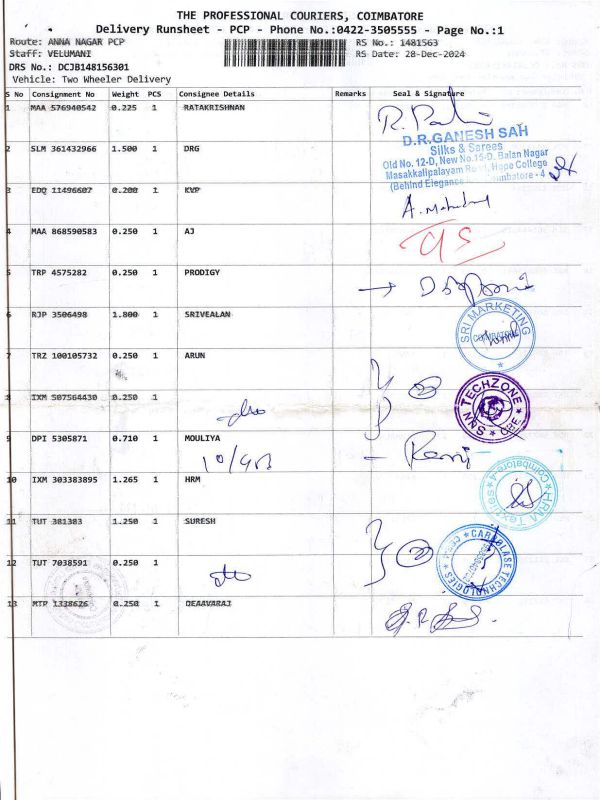 THE PROFESSIONAL COURIERS, COIMBATORE
Delivery Runsheet - PCP - Phone No.:0422-3505555 - Page No.:1
Route: ANNA NAGAR PCP RS No.: 1481563
Staff: VELUMANI RS Date: 28-Dec-2024
DRS No.: DCJB148156301
Vehicle: Two Wheeler Delivery
S No Consignment No Weight PCS Consignee Details Remarks Seal & Signature
1 MAA 576940542 0.225 1 RATAKRISHNAN
D.R.GANESH SAH
Silks & Sarees
Old No. 12-D, New No.15-D, Balan Nagar
Masakkalipalayam Road, Hope College
(Behind Elegance Coimbatore - 4
2 SLM 361432966 1.500 1 DRG
3 EDQ 11496607 0.200 1 KVP
4 MAA 868590583 0.250 1 AJ
5 TRP 4575282 0.250 1 PRODIGY
6 RJP 3506498 1.800 1 SRIVEALAN
SRI MARKETING
COIMBATORE
7 TRZ 100105732 0.250 1 ARUN
8 IXM 507564430 0.250 1
TECHZONE
SNN ★ CBE ★
9 DPI 5305871 0.710 1 MOULIYA
10 IXM 303383895 1.265 1 HRM
HRM Textiles ★ Coimbatore-4 ★
11 TUT 381383 1.250 1 SURESH
12 TUT 7038591 0.250 1
TECHNOLOGIES
13 MTP 1338626 0.250 1